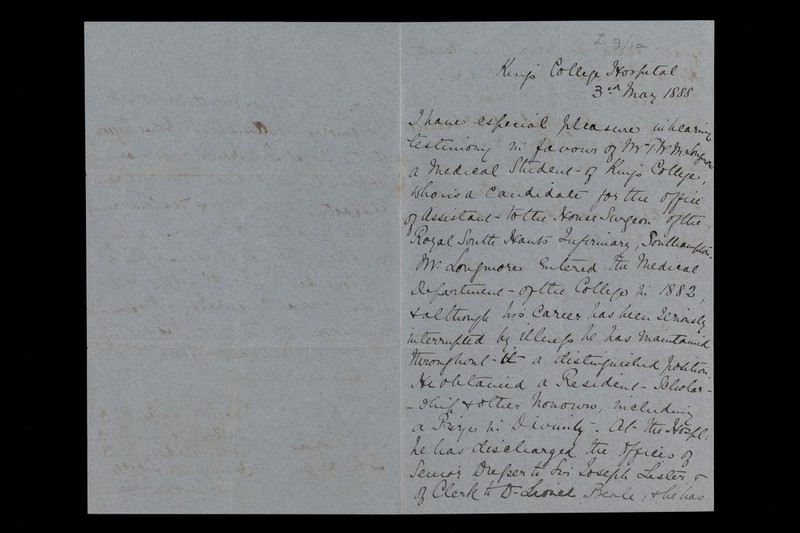 L. 9/1a
King's College Hospital
3rd May 1888
I have especial pleasure in bearing
testimony in favour of Mr T W M Longmore
a Medical Student of King's College,
who is a candidate for the office
of Assistant to the House Surgeon of the
Royal South Hants Infirmary, Southampton.
Mr. Longmore entered the Medical
Department of the College in 1882,
& although his career has been seriously
interrupted by illness he has maintained
throughout it a distinguished position.
He obtained a Resident Scholar-
-ship & other honours, including
a Prize in Divinity. At the Hospl.
he has discharged the offices of
Senior Dresser to Sir Joseph Lister, &
of Clerk to Dr Lionel Beale, & he has